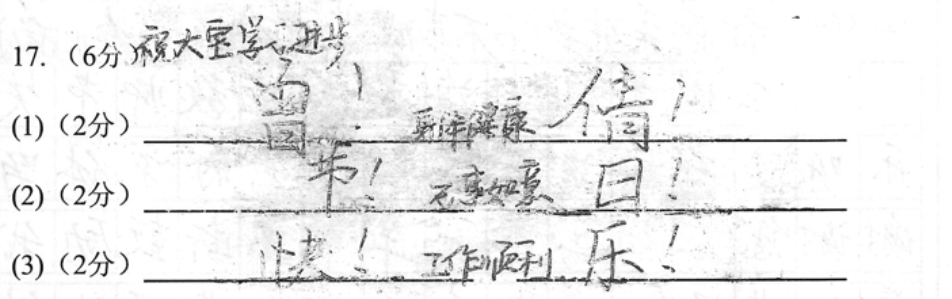 17. (6分) 祝大宝学习进步
(1)(2分) 曾! 身体健康 倩!
(2)(2分) 节! 万事如意 日!
(3)(2分) 快! 工作顺利 乐!